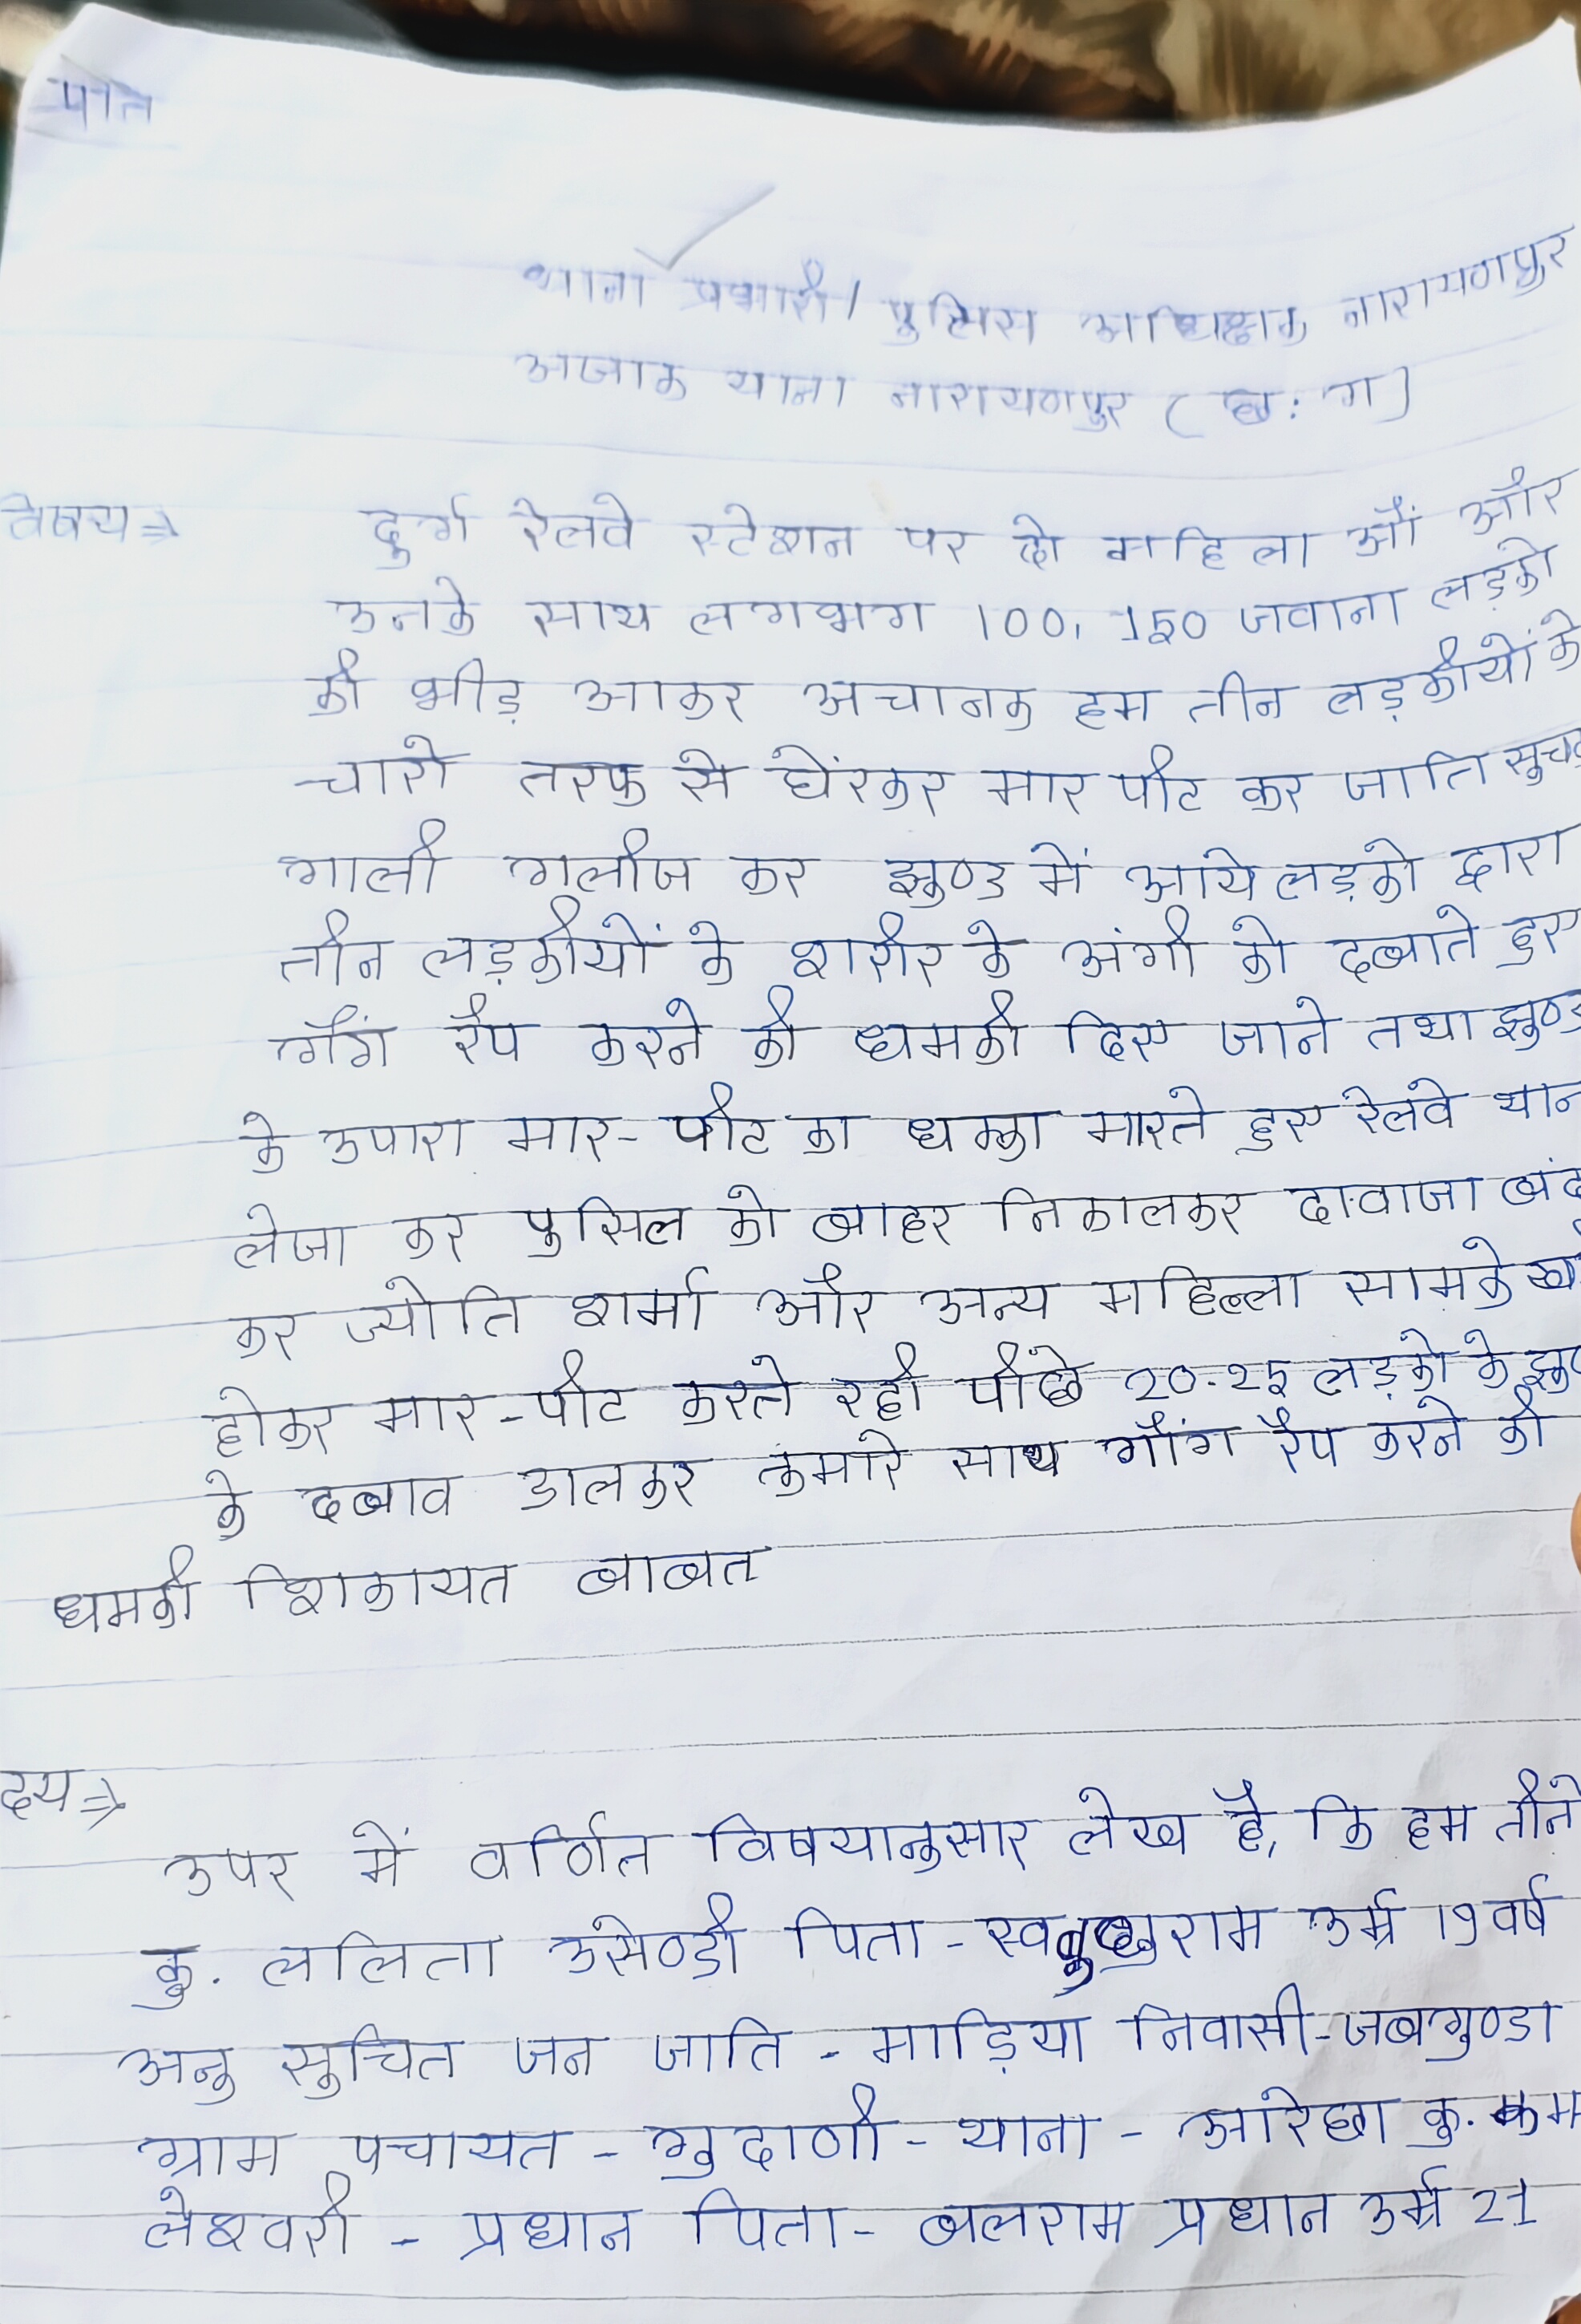 थाना प्रभारी/ पुलिस अधिक्षक नारायणपुर
अजाक थाना नारायणपुर (छ: ग)
विषय⇒ दुर्ग रेलवे स्टेशन पर दो महिला औं और
उनके साथ लगभग 100, 150 जवाना लड़को
की भीड़ आकर अचानक हम तीन लड़कीयों के
चारो तरफ से घेंरकर मार पीट कर जाति सुचक
गाली गलौज कर झुण्ड में आये लड़को द्वारा
तीन लड़कीयों के शरीर के अंगो को दबाते हुए
गैंग रैप करने की धमकी दिए जाने तथा झुण्ड
के उपारा मार-पीट का धक्का मारते हुए रेलवे थान
लेजा कर पुसिल को बाहर निकालकर दावाजा बंद
कर ज्योति शर्मा और अन्य महिला सामके
होकर मार-पीट करते रही पीछे 20-25 लड़को के
के दबाव डालकर हमारे साथ गौंग रैप करने की
धमकी शिकायत बाबत
दय⇒
उपर में वर्णित विषयानुसार लेख है, कि हम तीनो
कु. ललिता उसेण्डी पिता-स्व राम उर्म्र 19 वर्ष
अनु सुचित जन जाति - माड़िया निवासी-जबगुण्डा
ग्राम पचायत - गुदाणी - थाना - आरेछा कु. कम
लेश्वरी - प्रधान पिता - बलराम प्रधान उर्म्र 21